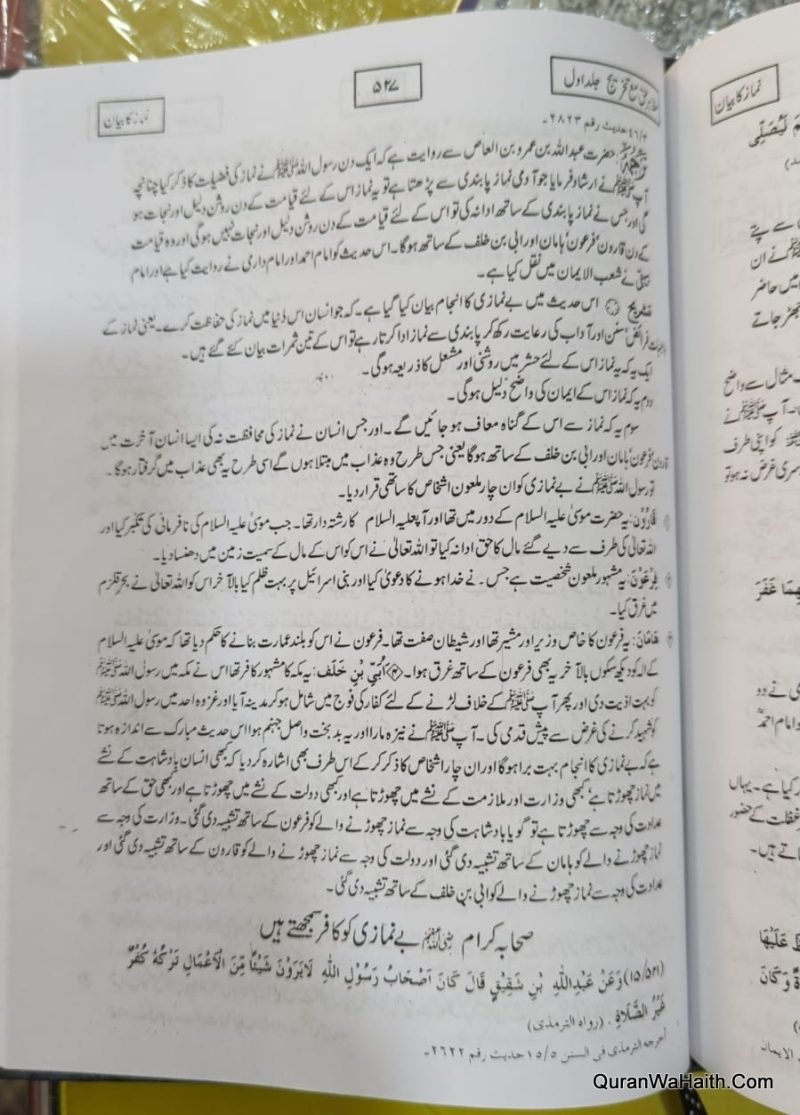 مظاہر حق مع تخریج جلد اول
۵۲۷
نماز کا بیان
۴۶/۳ حدیث رقم ۲۸۲۳۔
حضرت عبداللہ بن عمرو بن العاص سے روایت ہے کہ ایک دن رسول اللہ ﷺ نے نماز کی فضیلت کا ذکر کیا چنانچہ
آپ ﷺ نے ارشاد فرمایا جو آدمی نماز پابندی سے پڑھتا ہے تو یہ نماز اس کے لئے قیامت کے دن روشن دلیل اور نجات ہو
گی اور جس نے نماز پابندی کے ساتھ ادا نہ کی تو اس کے لئے قیامت کے دن روشن دلیل اور نجات نہیں ہوگی اور وہ قیامت
کے دن قارون، فرعون، ہامان اور ابی بن خلف کے ساتھ ہوگا۔ اس حدیث کو امام احمد اور امام دارمی نے روایت کیا ہے اور امام
بیہقی نے شعب الایمان میں نقل کیا ہے۔
تشریح اس حدیث میں بے نمازی کا انجام بیان کیا گیا ہے۔ کہ جو انسان اس دنیا میں نماز کی حفاظت کرے۔ یعنی نماز کے
فرائض، سنن اور آداب کی رعایت رکھ کر پابندی سے نماز ادا کرتا رہے تو اس کے تین ثمرات بیان کئے گئے ہیں۔
ایک یہ کہ یہ نماز اس کے لئے حشر میں روشنی اور مشعل کا ذریعہ ہوگی۔
دوم یہ کہ نماز اس کے ایمان کی واضح دلیل ہوگی۔
سوم یہ کہ نماز سے اس کے گناہ معاف ہو جائیں گے۔ اور جس انسان نے نماز کی محافظت نہ کی ایسا انسان آخرت میں
قارون، فرعون، ہامان اور ابی بن خلف کے ساتھ ہوگا یعنی جس طرح وہ عذاب میں مبتلا ہوں گے اسی طرح یہ بھی عذاب میں گرفتار ہوگا۔
تو رسول اللہ ﷺ نے بے نمازی کو ان چار ملعون اشخاص کا ساتھی قرار دیا۔
قَارُوْن: یہ حضرت موسیٰ علیہ السلام کے دور میں تھا اور آپ علیہ السلام کا رشتہ دار تھا۔ جب موسیٰ علیہ السلام کی نافرمانی کی تکبر کیا اور
اللہ تعالیٰ کی طرف سے دیے گئے مال کا حق ادا نہ کیا تو اللہ تعالیٰ نے اس کو اس کے مال کے سمیت زمین میں دھنسا دیا۔
فِرْعَوْن: یہ مشہور ملعون شخصیت ہے جس نے خدا ہونے کا دعویٰ کیا اور بنی اسرائیل پر بہت ظلم کیا بالآخر اس کو اللہ تعالیٰ نے بحر قلزم
میں غرق کیا۔
هَامَان: یہ فرعون کا خاص وزیر اور مشیر تھا اور شیطان صفت تھا۔ فرعون نے اس کو بلند عمارت بنانے کا حکم دیا تھا کہ موسیٰ علیہ السلام
کے الہ کو دیکھ سکوں بالآخر یہ بھی فرعون کے ساتھ غرق ہوا۔ ﴿۴﴾ اُبَیّ بْنِ خَلَف: یہ مکہ کا مشہور کافر تھا اس نے مکہ میں رسول اللہ ﷺ
کو بہت اذیت دی اور پھر آپ ﷺ کے خلاف لڑنے کے لئے کفار کی فوج میں شامل ہو کر مدینہ آیا اور غزوہ احد میں رسول اللہ ﷺ
کو شہید کرنے کی غرض سے پیش قدمی کی۔ آپ ﷺ نے نیزہ مارا اور یہ بد بخت واصل جہنم ہوا اس حدیث مبارک سے اندازہ ہوتا
ہے کہ بے نمازی کا انجام بہت برا ہوگا اور ان چار اشخاص کا ذکر کر کے اس طرف بھی اشارہ کر دیا کہ کبھی انسان بادشاہت کے نشے
میں نماز چھوڑتا ہے، کبھی وزارت اور ملازمت کے نشے میں چھوڑتا ہے اور کبھی دولت کے نشے میں چھوڑتا ہے اور کبھی حق کے ساتھ
عداوت کی وجہ سے چھوڑتا ہے تو گویا بادشاہت کی وجہ سے نماز چھوڑنے والے کو فرعون کے ساتھ تشبیہ دی گئی۔ وزارت کی وجہ سے
نماز چھوڑنے والے کو ہامان کے ساتھ تشبیہ دی گئی اور دولت کی وجہ سے نماز چھوڑنے والے کو قارون کے ساتھ تشبیہ دی گئی اور
عداوت کی وجہ سے نماز چھوڑنے والے کو ابی بن خلف کے ساتھ تشبیہ دی گئی۔
صحابہ کرام رضی اللہ عنہم بے نمازی کو کافر سمجھتے ہیں
(۱۵/۵۳۱) وَعَنْ عَبْدِاللّٰهِ بْنِ شَقِيْقٍ قَالَ كَانَ اَصْحَابُ رَسُوْلِ اللّٰهِ لَايَرَوْنَ شَيْئًا مِّنَ الْاَعْمَالِ تَرْكُهٗ كُفْرٌ
غَيْرُ الصَّلَاةِ۔ (رواه الترمذی)
أخرجه الترمذی فی السنن ۱۵/۵ حدیث رقم ۲۶۲۲۔
نماز کا بیان
سے پتے
نے ان
میں حاضر
جھڑ جاتے
مثال سے واضح
آپ ﷺ نے
کو اپنی طرف
سری غرض نہ ہو تو
غَفَرَ
نے دو
امام احمدؒ
کیا ہے۔ یہاں
غفلت کے حضور
جاتے ہیں۔
عَلَيْهَا
وَكَانَ
الایمان
QuranWaHaith.Com